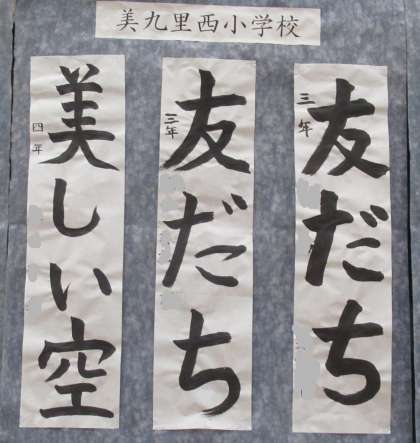 美九里西小学校
友だち
三年
友だち
三年
美しい空
四年